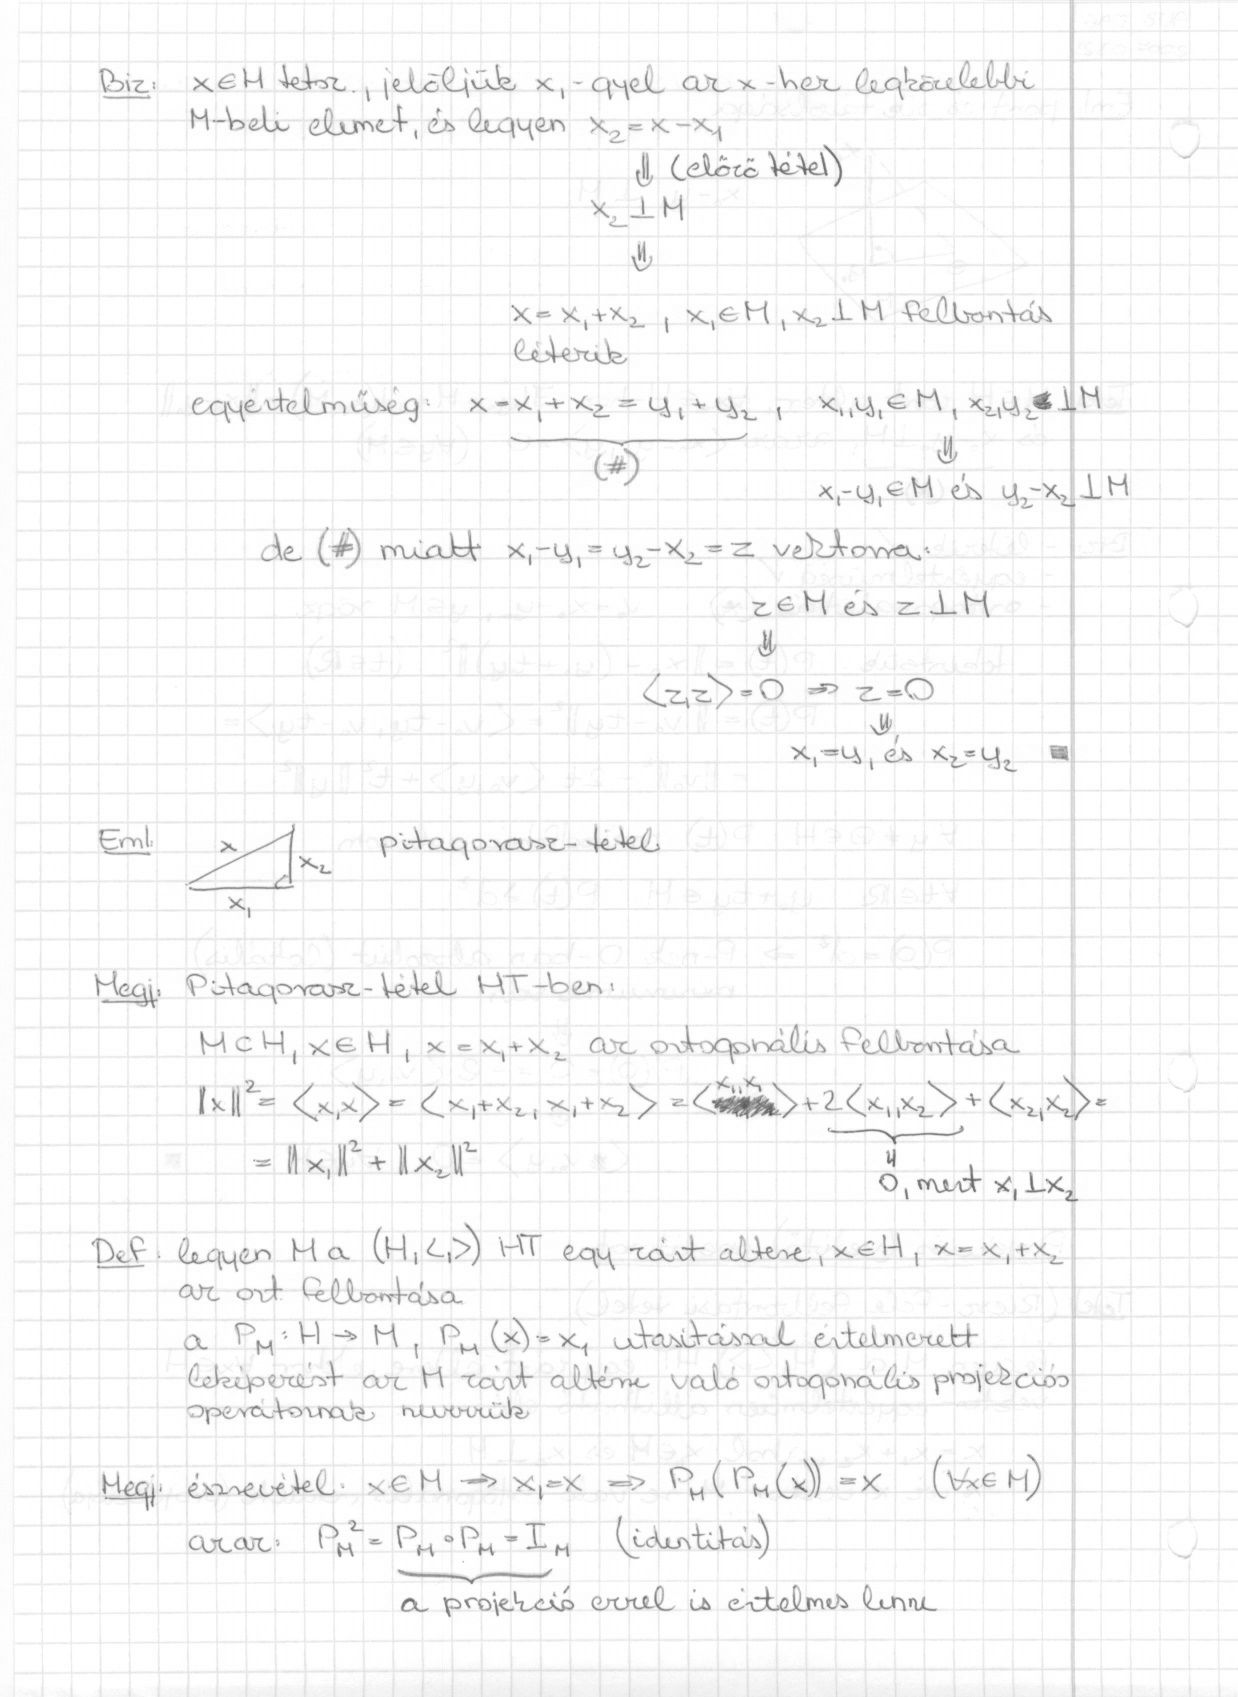 Biz: x∈H tetsz., jelöljük x₁-gyel az x-hez legközelebbi
M-beli elemet, és legyen x₂=x-x₁
⇓ (előző tétel)
x₂⊥M
⇓
x=x₁+x₂, x₁∈M, x₂⊥M felbontás
létezik
egyértelműség: x=x₁+x₂=y₁+y₂, x₁,y₁∈M, x₂,y₂⊥M
(#) ⇓
x₁-y₁∈M és y₂-x₂⊥M
de (#) miatt x₁-y₁=y₂-x₂=z vektorra:
z∈M és z⊥M
⇓
⟨z,z⟩=0 ⇒ z=0
⇓
x₁=y₁ és x₂=y₂ ■
Eml: x x₂ x₁ pitagorasz-tétel
Megj: Pitagorasz-tétel HT-ben:
M⊂H, x∈H, x=x₁+x₂ az ortogonális felbontása
‖x‖²=⟨x,x⟩=⟨x₁+x₂,x₁+x₂⟩=⟨x₁,x₁⟩+2⟨x₁,x₂⟩+⟨x₂,x₂⟩=
=‖x₁‖²+‖x₂‖²
0, mert x₁⊥x₂
Def: legyen M a (H,<,>) HT egy zárt altere, x∈H, x=x₁+x₂
az ort. felbontása
a P_M:H→M, P_M(x)=x₁ utasítással értelmezett
leképezést az M zárt altérre való ortogonális projekciós
operátornak nevezzük
Megj: észrevétel: x∈M ⇒ x₁=x ⇒ P_M(P_M(x))=x (∀x∈M)
azaz: P_M²=P_M∘P_M=I_M (identitás)
a projekció ezzel is értelmes lenne